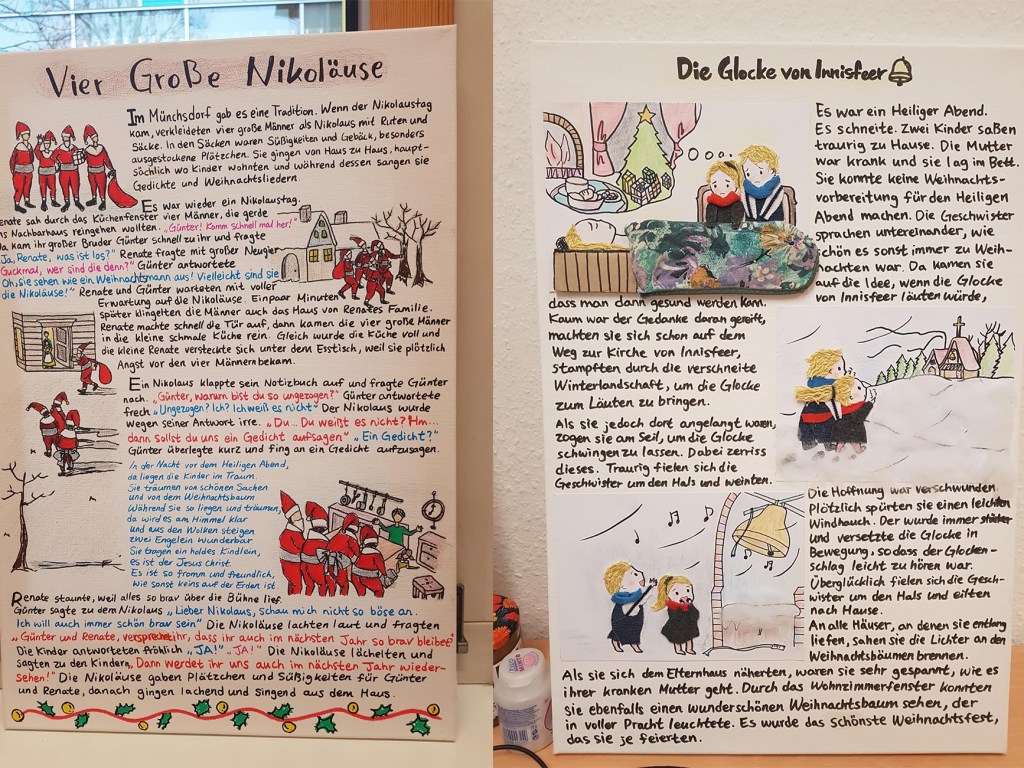 Vier Große Nikoläuse
Im Münchsdorf gab es eine Tradition. Wenn der Nikolaustag
kam, verkleideten vier große Männer als Nikolaus mit Ruten und
Säcke. In den Säcken waren Süßigkeiten und Gebäck, besonders
ausgestockene Plätzchen. Sie gingen von Haus zu Haus, haupt-
sächlich wo Kinder wohnten und während dessen sangen sie
Gedichte und Weihnachtsliedern.
Es war wieder ein Nikolaustag.
enate sah durch das Küchenfenster vier Männer, die gerde
ns Nachbarhaus reingehen wollten. „Günter! Komm schnell mal her!"
da kam ihr großer Bruder Günter schnell zu ihr und fragte
„Ja, Renate, was ist los?" Renate fragte mit großer Neugier
Guckmal, wer sind die denn?" Günter antwortete
„Oh, sie sehen wie ein Weihnachtsmann aus! Vielleicht sind sie
die Nikoläuse!" Renate und Günter warteten mit voller
Erwartung auf die Nikoläuse. Ein paar Minuten
später klingelten die Männer auch das Haus von Renates Familie.
Renate machte schnell die Tür auf, dann kamen die vier große Männer
in die kleine schmale Küche rein. Gleich wurde die Küche voll und
die kleine Renate versteckte sich unter dem Esstisch, weil sie plötzlich
Angst vor den vier Männern bekam.
Ein Nikolaus klappte sein Notizbuch auf und fragte Günter
nach. „Günter, warum bist du so ungezogen?" Günter antwortete
frech „Ungezogen? Ich? Ich weiß es nicht" Der Nikolaus wurde
wegen seiner Antwort irre. „Du... Du weißt es nicht? Hm...
dann sollst du uns ein Gedicht aufsagen" „Ein Gedicht?"
Günter überlegte kurz und fing an ein Gedicht aufzusagen.
In der Nacht vor dem Heiligen Abend,
da liegen die Kinder im Traum.
Sie träumen von schönen Sachen
und von dem Weihnachtsbaum
Während sie so liegen und träumen,
da wird es am Himmel klar
und aus den Wolken steigen
zwei Engelein wunderbar
Sie tragen ein holdes Kindlein,
es ist der Jesus Christ.
Es ist so fromm und freundlich,
wie sonst keins auf der Erden ist
Renate staunte, weil alles so brav über die Bühne lief.
Günter sagte zu dem Nikolaus „Lieber Nikolaus, schau mich nicht so böse an.
Ich will auch immer schön brav sein" Die Nikoläuse lachten laut und fragten
„Günter und Renate, versprecht ihr, dass ihr auch im nächsten Jahr so brav bleibet?"
Die Kinder antworteten fröhlich „JA!" „JA!" Die Nikoläuse lächelten und
sagten zu den Kindern, „Dann werdet ihr uns auch im nächsten Jahr wieder-
sehen!" Die Nikoläuse gaben Plätzchen und Süßigkeiten für Günter
und Renate, danach gingen lachend und singend aus dem Haus.
Die Glocke von Innisfeer
Es war ein Heiliger Abend.
Es schneite. Zwei Kinder saßen
traurig zu Hause. Die Mutter
war krank und sie lag im Bett.
Sie konnte keine Weihnachts-
vorbereitung für den Heiligen
Abend machen. Die Geschwister
sprachen untereinander, wie
schön es sonst immer zu Weih-
nachten war. Da kamen sie
auf die Idee, wenn die Glocke
von Innisfeer läuten würde,
dass man dann gesund werden kann.
Kaum war der Gedanke daran gereift,
machten sie sich schon auf dem
Weg zur Kirche von Innisfeer,
stampften durch die verschneite
Winterlandschaft, um die Glocke
zum Läuten zu bringen.
Als sie jedoch dort angelangt waren,
zogen sie am Seil, um die Glocke
schwingen zu lassen. Dabei zerriss
dieses. Traurig fielen sich die
Geschwister um den Hals und weinten.
Die Hoffnung war verschwunden
Plötzlich spürten sie einen leichten
Windhauch. Der wurde immer stärker
und versetzte die Glocke in
Bewegung, so dass der Glocken-
schlag leicht zu hören war.
Überglücklich fielen sich die Gesch-
wister um den Hals und eilten
nach Hause.
An alle Häuser, an denen sie entlang
liefen, sahen sie die Lichter an den
Weihnachtsbäumen brennen.
Als sie sich dem Elternhaus näherten, waren sie sehr gespannt, wie es
ihrer kranken Mutter geht. Durch das Wohnzimmerfenster konnten
sie ebenfalls einen wunderschönen Weihnachtsbaum sehen, der
in voller Pracht leuchtete. Es wurde das schönste Weihnachtsfest,
das sie je feierten.